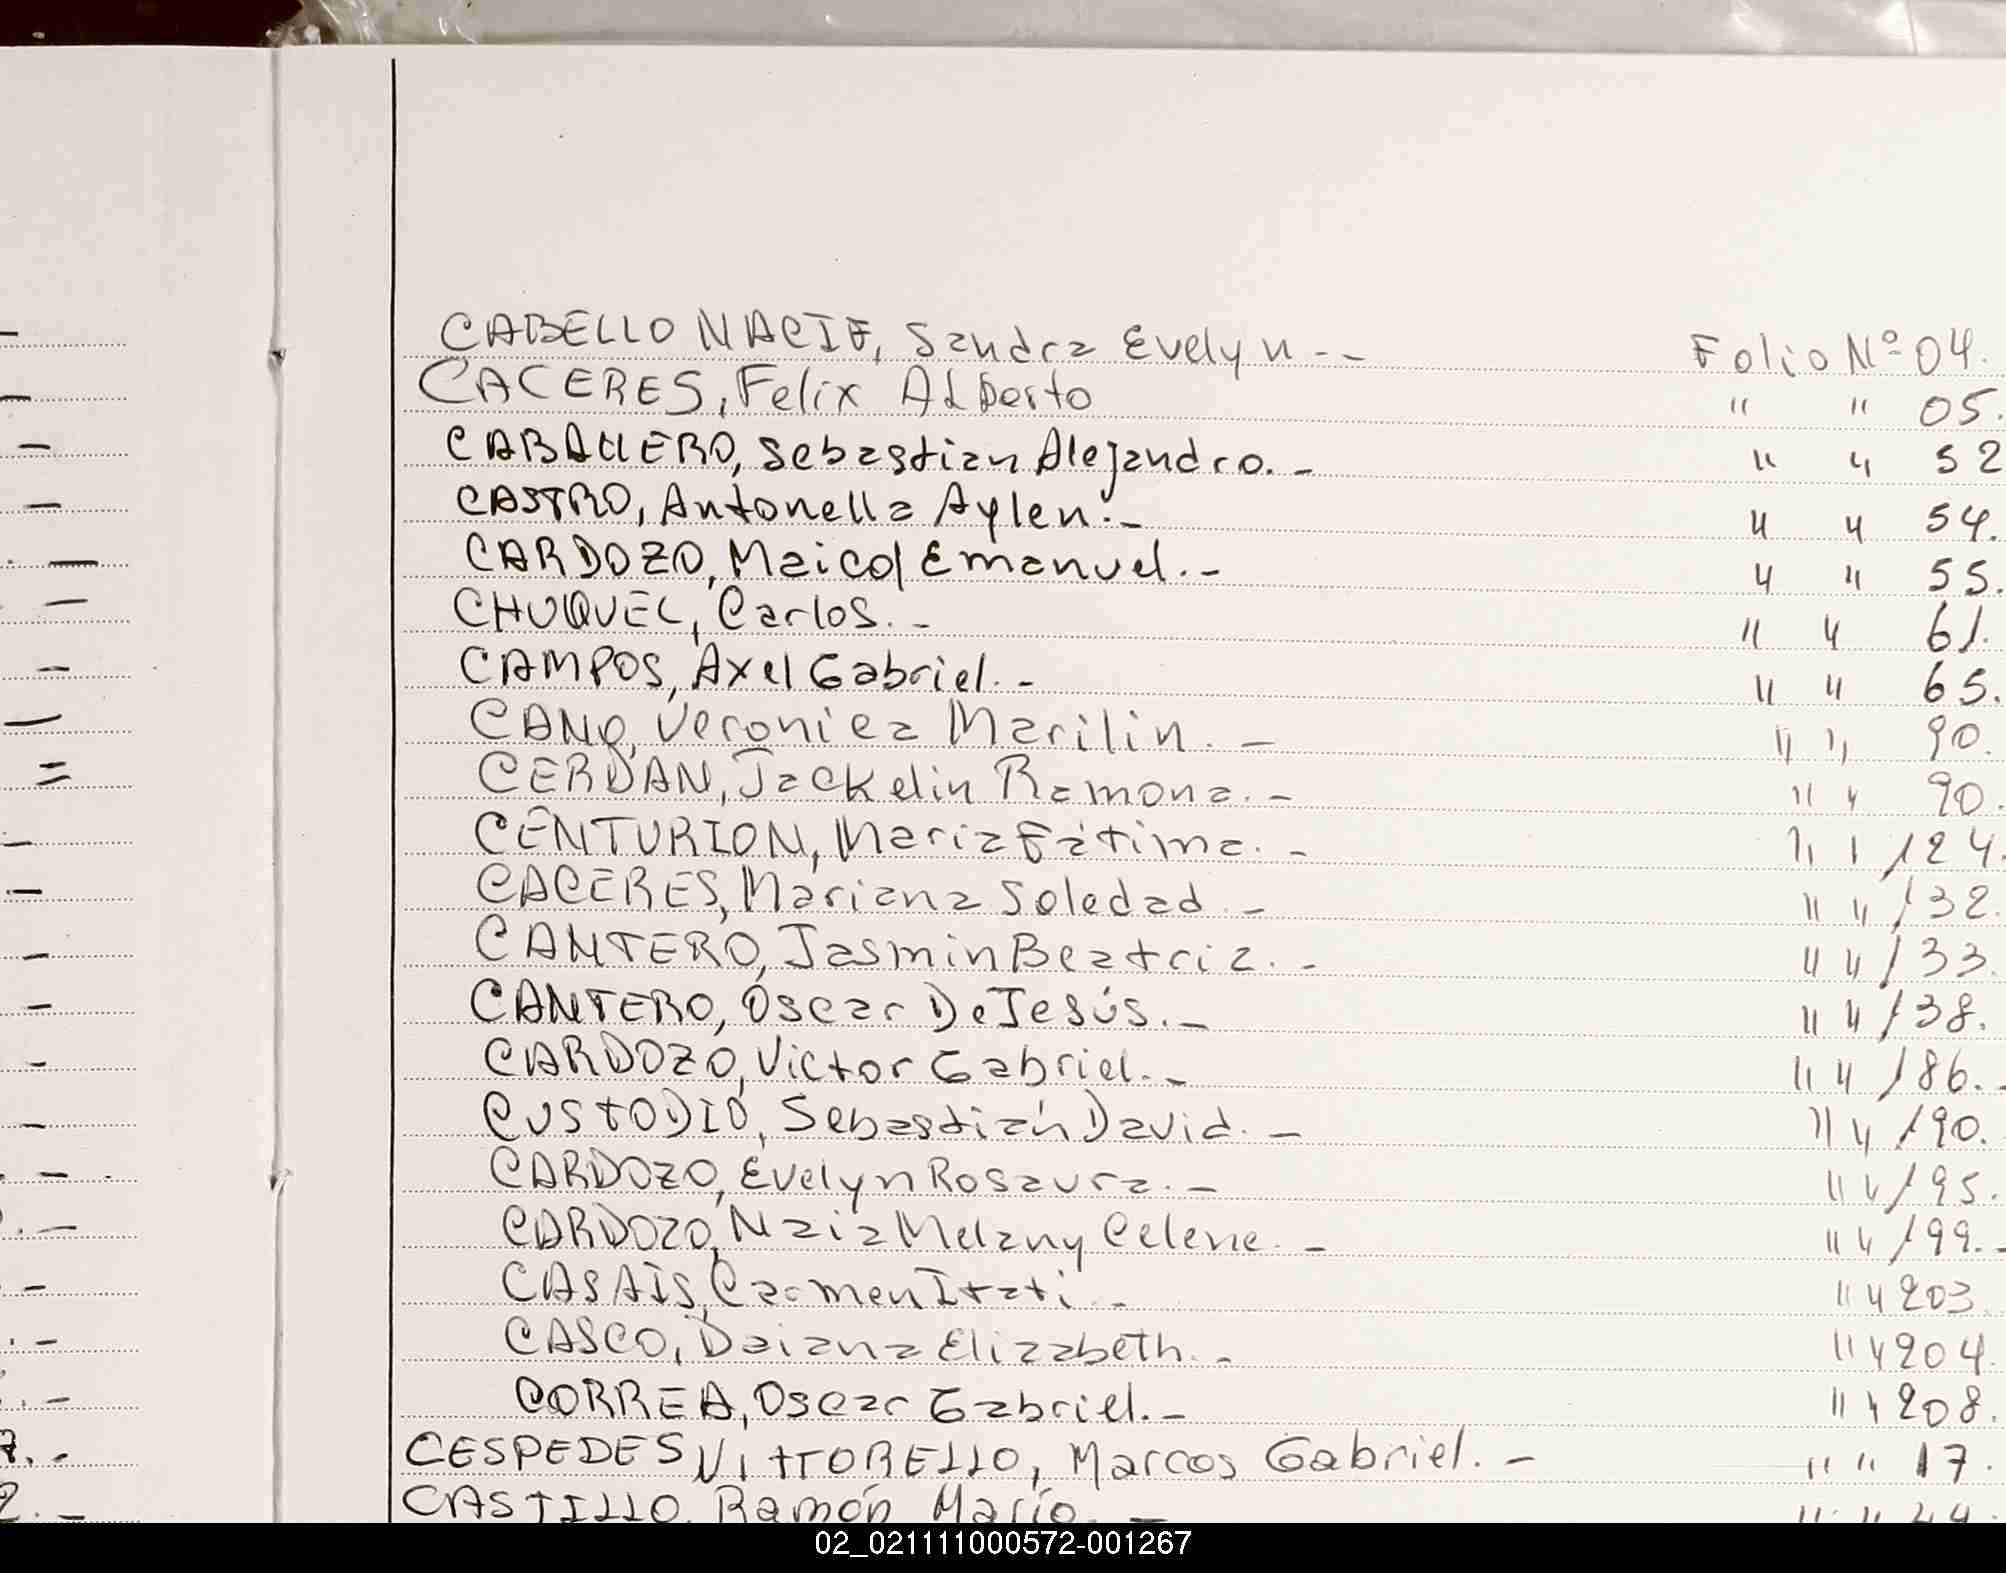 CABELLO NACIF, Sandra Evelyn.- Folio Nº 04.
CACERES, Felix ALberto " " 05.
CABALLERO, Sebastian Alejandro.- " " 52
CASTRO, Antonella Aylen.- " " 54.
CARDOZO, Maicol Emanuel.- " " 55.
CHUQUEL, Carlos.- " " 61.
CAMPOS, Axel Gabriel.- " " 65.
CANO, Veronica Marilin.- " " 90.
CERDAN, Jackelin Ramona.- " " 90.
CENTURION, Maria Fátima.- " " 124.
CACERES, Mariana Soledad.- " " 132.
CANTERO, Jasmin Beatriz.- " " 133.
CANTERO, Óscar De Jesús.- " " 138.
CARDOZO, Victor Gabriel.- " " 186.-
CUSTODIO, Sebastián David.- " " 190.
CARDOZO, Evelyn Rosaura.- " " 195.
CARDOZO, Naia Melany Celene.- " " 199.-
CASAIS, Carmen Itati.- " " 203.
CASCO, Daiana Elizabeth.- " " 204.
CORREA, Oscar Gabriel.- " " 208.
7.- CESPEDES VITTORELLO, Marcos Gabriel.- " " 17.
2.- CASTILLO, Ramón Mario.- " " 44.
02_021111000572-001267